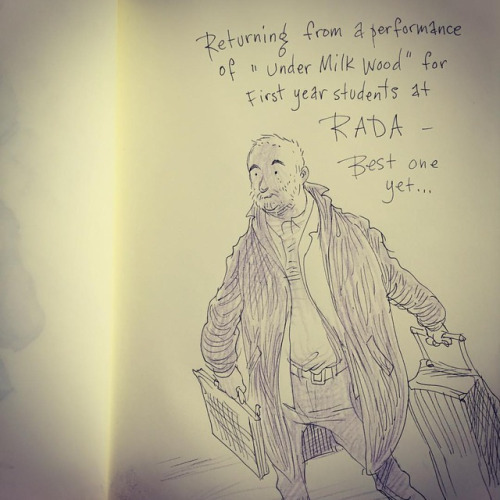 Returning from a performance
of "Under Milk Wood" for
First year students at
RADA -
Best one
yet...